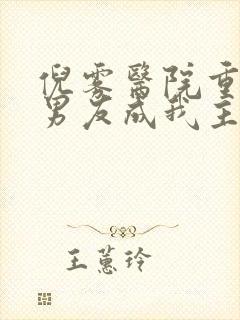 倪雾醫院重
男友成我主
王蕙玲